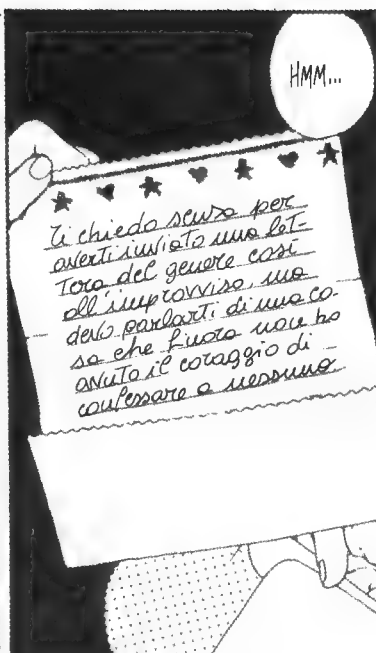 HMM...
Ti chiedo scusa per
averti inviato una let-
tera del genere così
all'improvviso, ma
devo parlarti di una co-
sa che finora non ho
avuto il coraggio di
confessare a nessuno